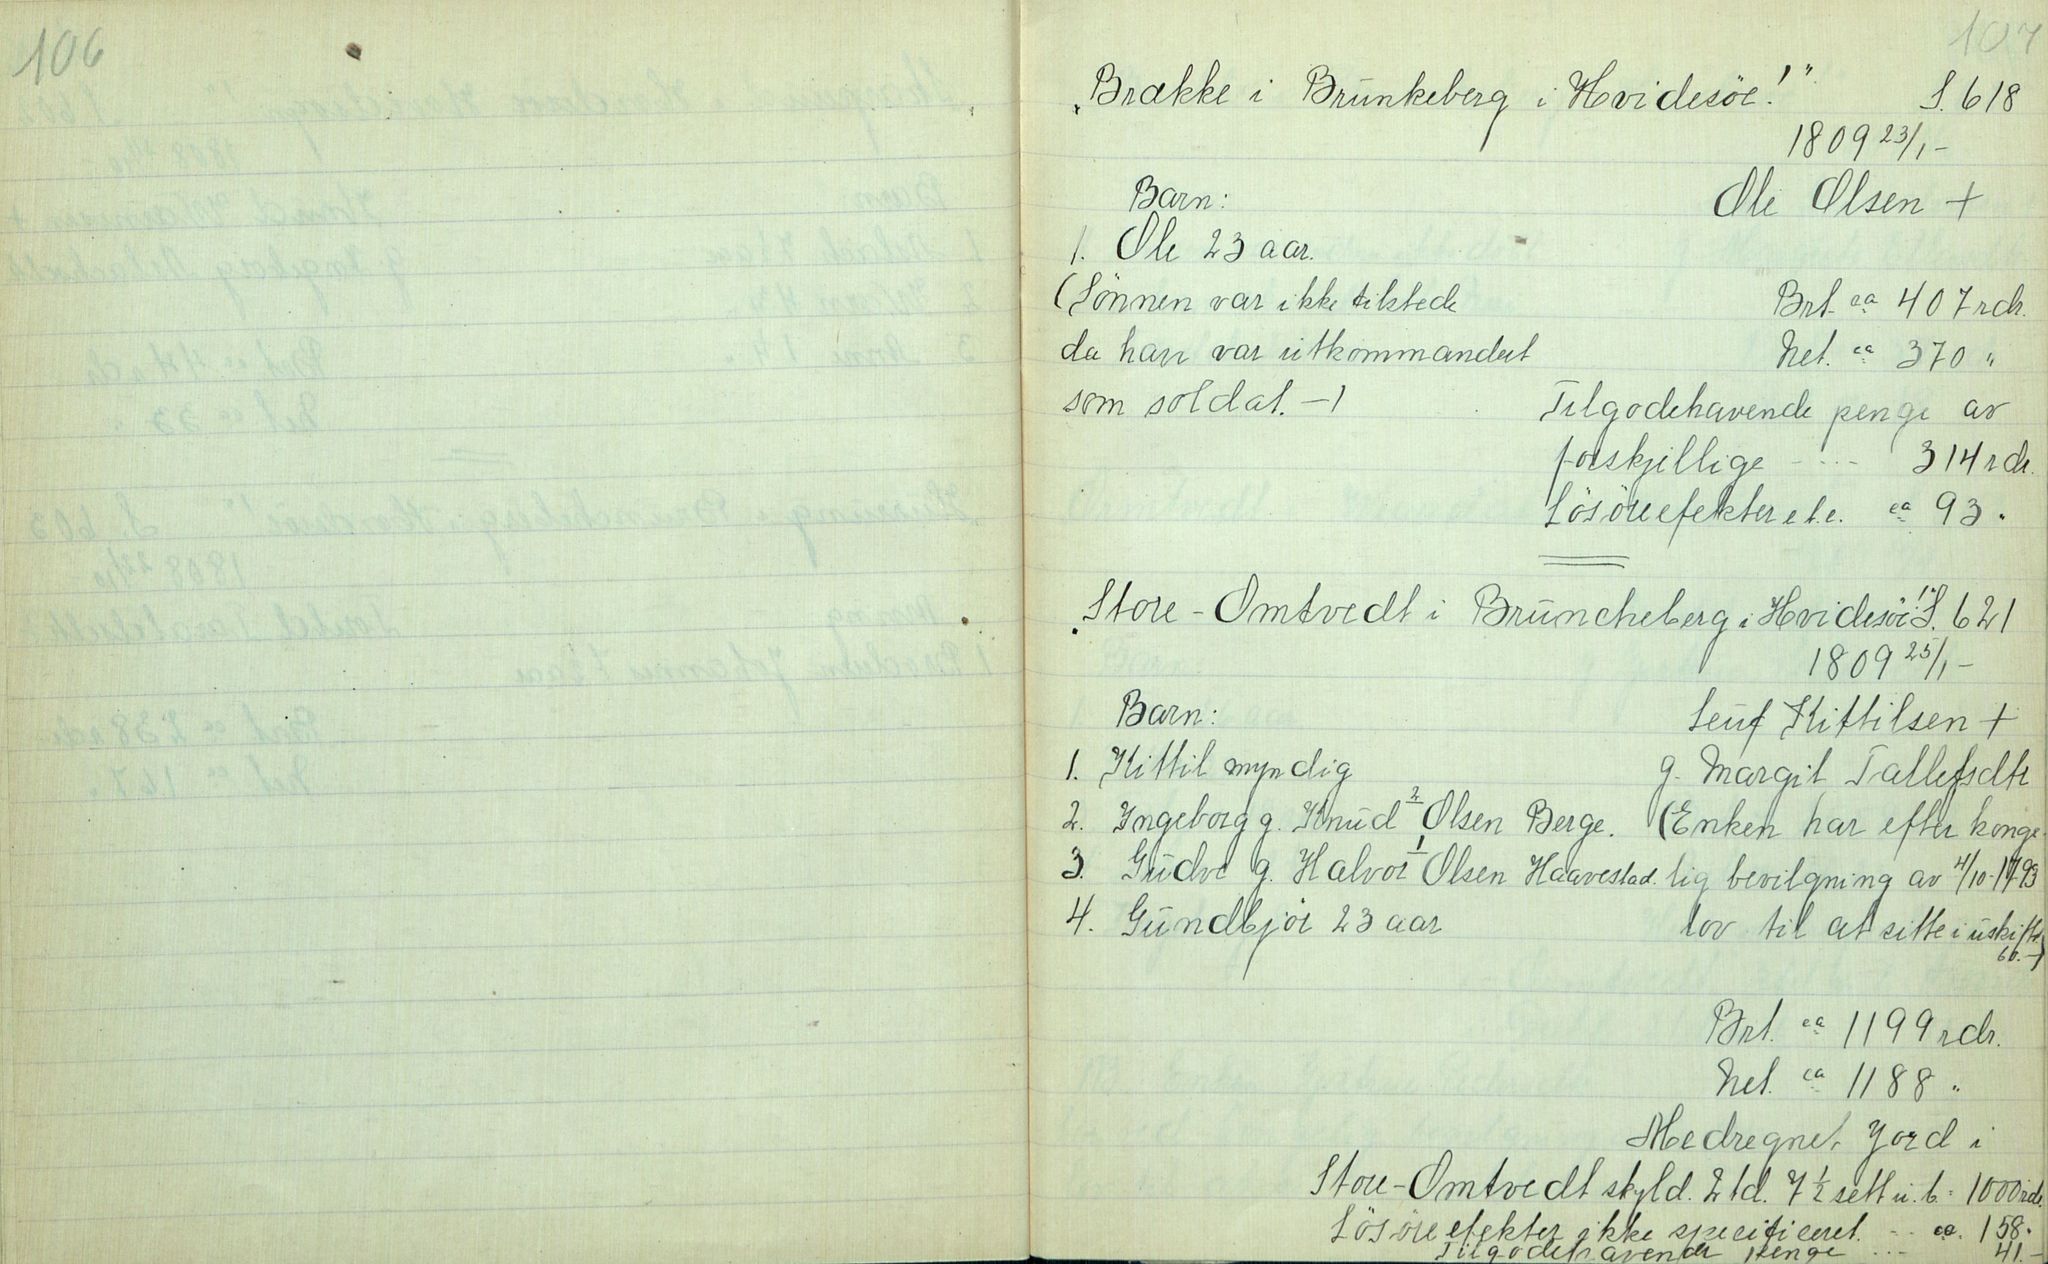 106
107
"Brække i Brunkeberg i Hvidesöe!" S. 618
1809 23/1 -
Barn: Ole Olsen +
1. Ole 23 aar.
(Sönnen var ikke tilstede Brt. ca 407 rdr.
da han var utkommandert Net. ca 370 "
som soldat. -) Tilgodehavende penge av
forskjellige - ... 314 rdr.
Lösöreefekter etc. ca 93 "
"Store-Omtvedt i Bruncheberg i Hvidesöe!" S. 621
1809 25/1 -
Barn: Leuf Kittilsen +
1. Kittil myndig g. Margit Tallefsdtr
2. Ingeborg g. Knud 2/ Olsen Berge. (Enken har efter konge-
3. Gudve g. Halvor 1/ Olsen Haavestad. lig bevilgning av 4/10-1793
4. Gundbjör 23 aar lov til at sitte i uskiftet
bo. -)
Brt. ca 1199 rdr.
Net. ca 1188 "
Medregnet Jord i
Store-Omtvedt skyld. 2 td. 7 1/2 sett. u. b = 1000 rdr.
Lösöreefekter ikke specificeret. - ca. 158 "
Tilgodehavende penge ... 41. -